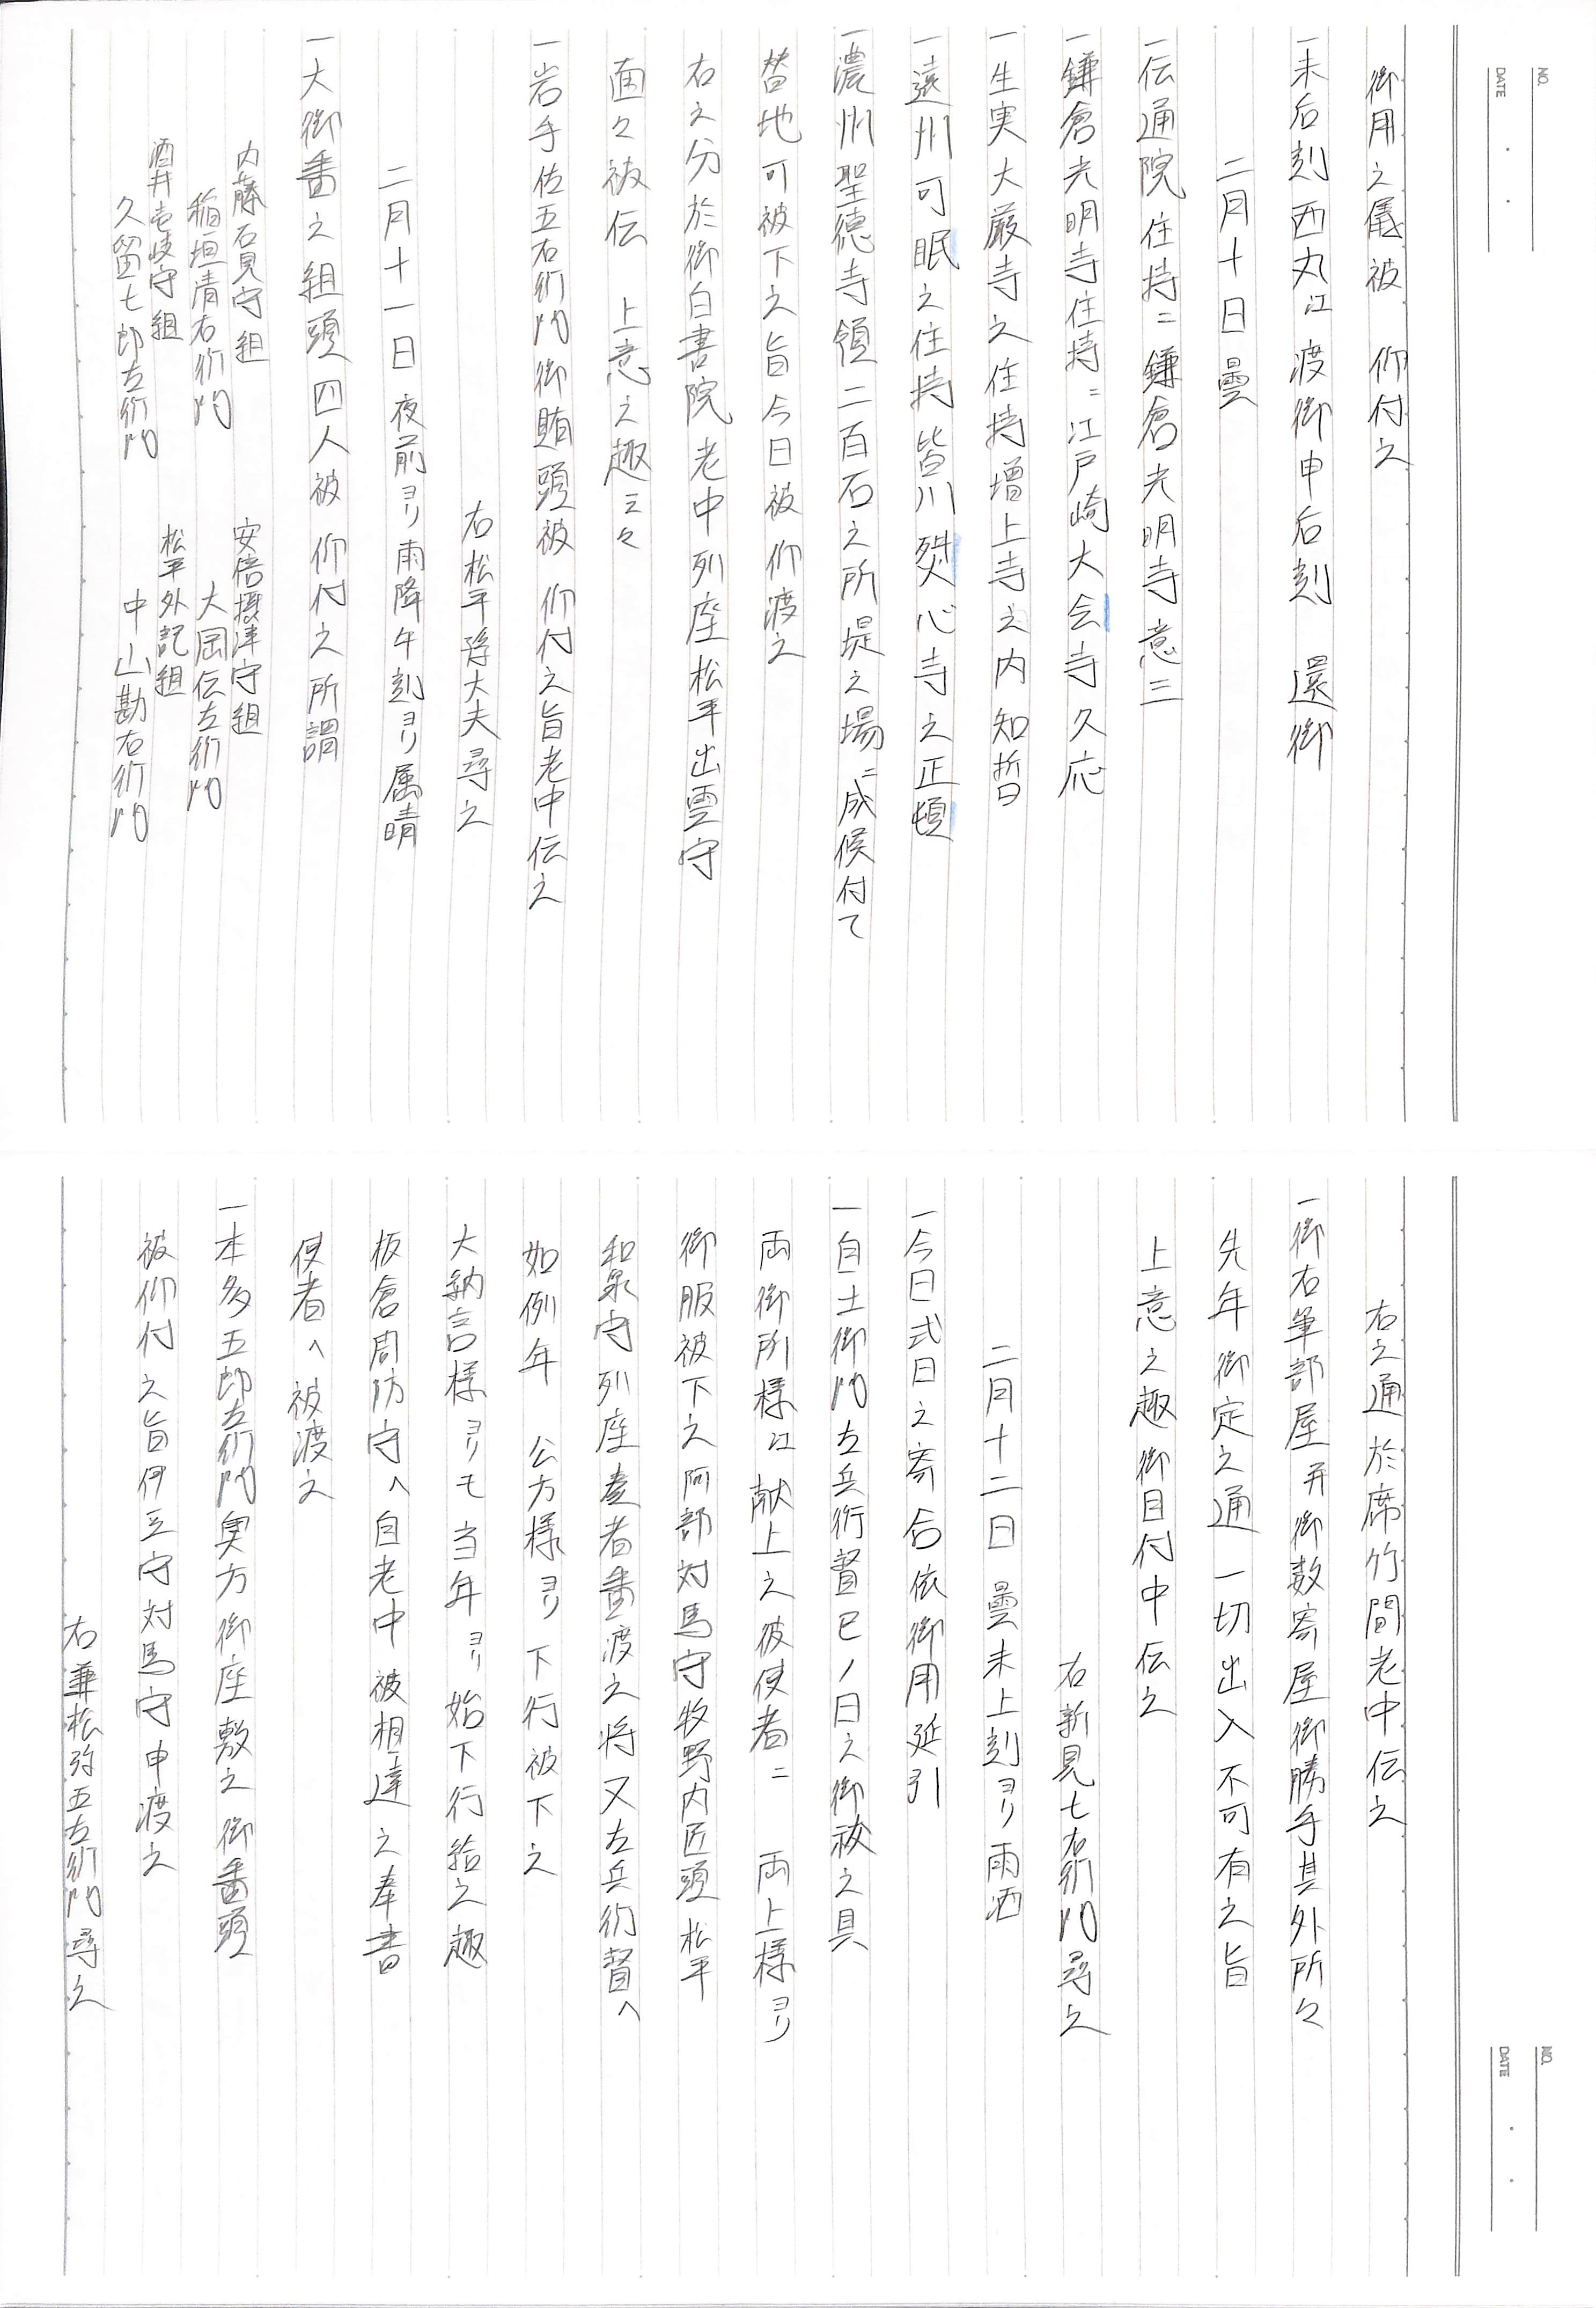 NO.
DATE
御用之儀被 仰付之
一未后刻西丸江 渡御申后刻 還御
二月十日曇
一伝通院住持ニ鎌倉光明寺意三
一鎌倉光明寺住持ニ江戸崎大念寺久応
一生実大厳寺之住持増上寺之内知哲
一遠州可眠之住持皆川 心寺之正頓
一濃州聖徳寺領二百石之所堤之場ニ成候付て
替地可被下之旨今日被 仰渡之
右之分於御白書院老中列座松平出雲守
面々被伝 上意之趣云々
一岩手佐五右衛門御賄頭被 仰付之旨老中伝之
右松平隼大夫尋之
二月十一日夜前ヨリ雨降午刻ヨリ属晴
一大御番之組頭四人被 仰付之所謂
内藤石見守組
稲垣清右衛門
安倍摂津守組
大岡伝左衛門
酒井壱岐守組
久留七郎左衛門
松平外記組
中山勘右衛門
NO.
DATE
右之通於席竹間老中伝之
一御右筆部屋并御数寄屋御勝手其外所々
先年御定之通一切出入不可有之旨
上意之趣御目付中伝之
右新見七右衛門尋之
二月十二日 曇未上刻ヨリ雨洒
一今日式日之寄合依御用延引
一自土御門左兵衛督巳ノ日之御祓之具
両御所様江献上之彼使者ニ 両上様ヨリ
御服被下之阿部対馬守牧野内匠頭松平
和泉守列座奏者番渡之将又左兵衛督へ
如例年 公方様ヨリ下行被下之
大納言様ヨリモ当年ヨリ始下行給之趣
板倉周防守へ自老中被相達之奉書
使者へ被渡之
一本多五郎左衛門奥方御座敷之御番頭
被仰付之旨伊豆守対馬守申渡之
右兼松弥五左衛門尋之